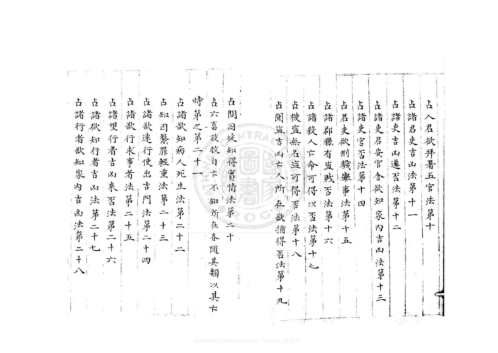 占人君欲拜署五官法第十
占諸君吏吉凶法第十一
占諸吏吉凶遷否法第十二
占諸吏居安官舍欲知家內吉凶法第十三
占諸吏官否法第十四
占君吏欲刑驗樂事法第十五
占諸郡縣有盜賊否法第十六
占諸殺人亡命可得以否法第十七
占被盜無名盜可得否法第十八
占聞盜吉凶亡人所在欲捕得否法第十九
占問囚徒知得實情法第二十
占六畜放牧自亡不知所在各隨其類以其亡
時第之第二十一
占諸欲知病人死生法第二十二
占知囚繫罪輕重法第二十三
占諸欲遠行使出吉門法第二十四
占諸欲行求事者法第二十五
占諸望行者吉凶來否法第二十六
占諸欲知行者吉凶法第二十七
占諸行者欲知家內吉凶法第二十八